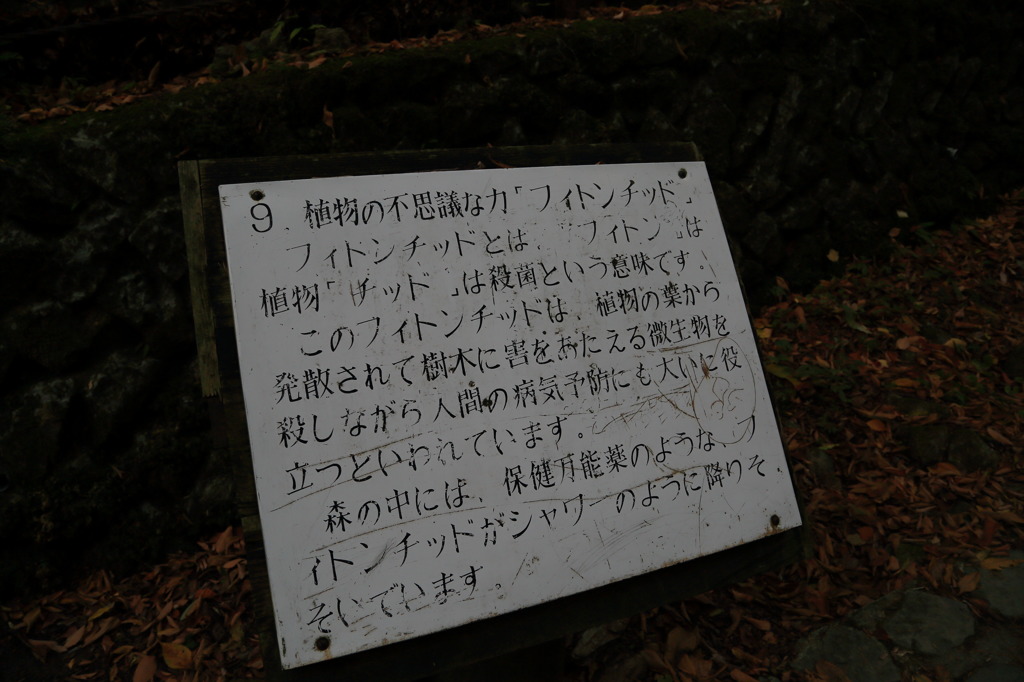 9. 植物の不思議な力「フィトンチッド」
フィトンチッドとは、「フィトン」は
植物「チッド」は殺菌という意味です。
このフィトンチッドは、植物の葉から
発散されて樹木に害をあたえる微生物を
殺しながら人間の病気予防にも大いに役
立つといわれています。
森の中には、保健万能薬のような、フ
ィトンチッドがシャワーのように降りそ
そいでいます。